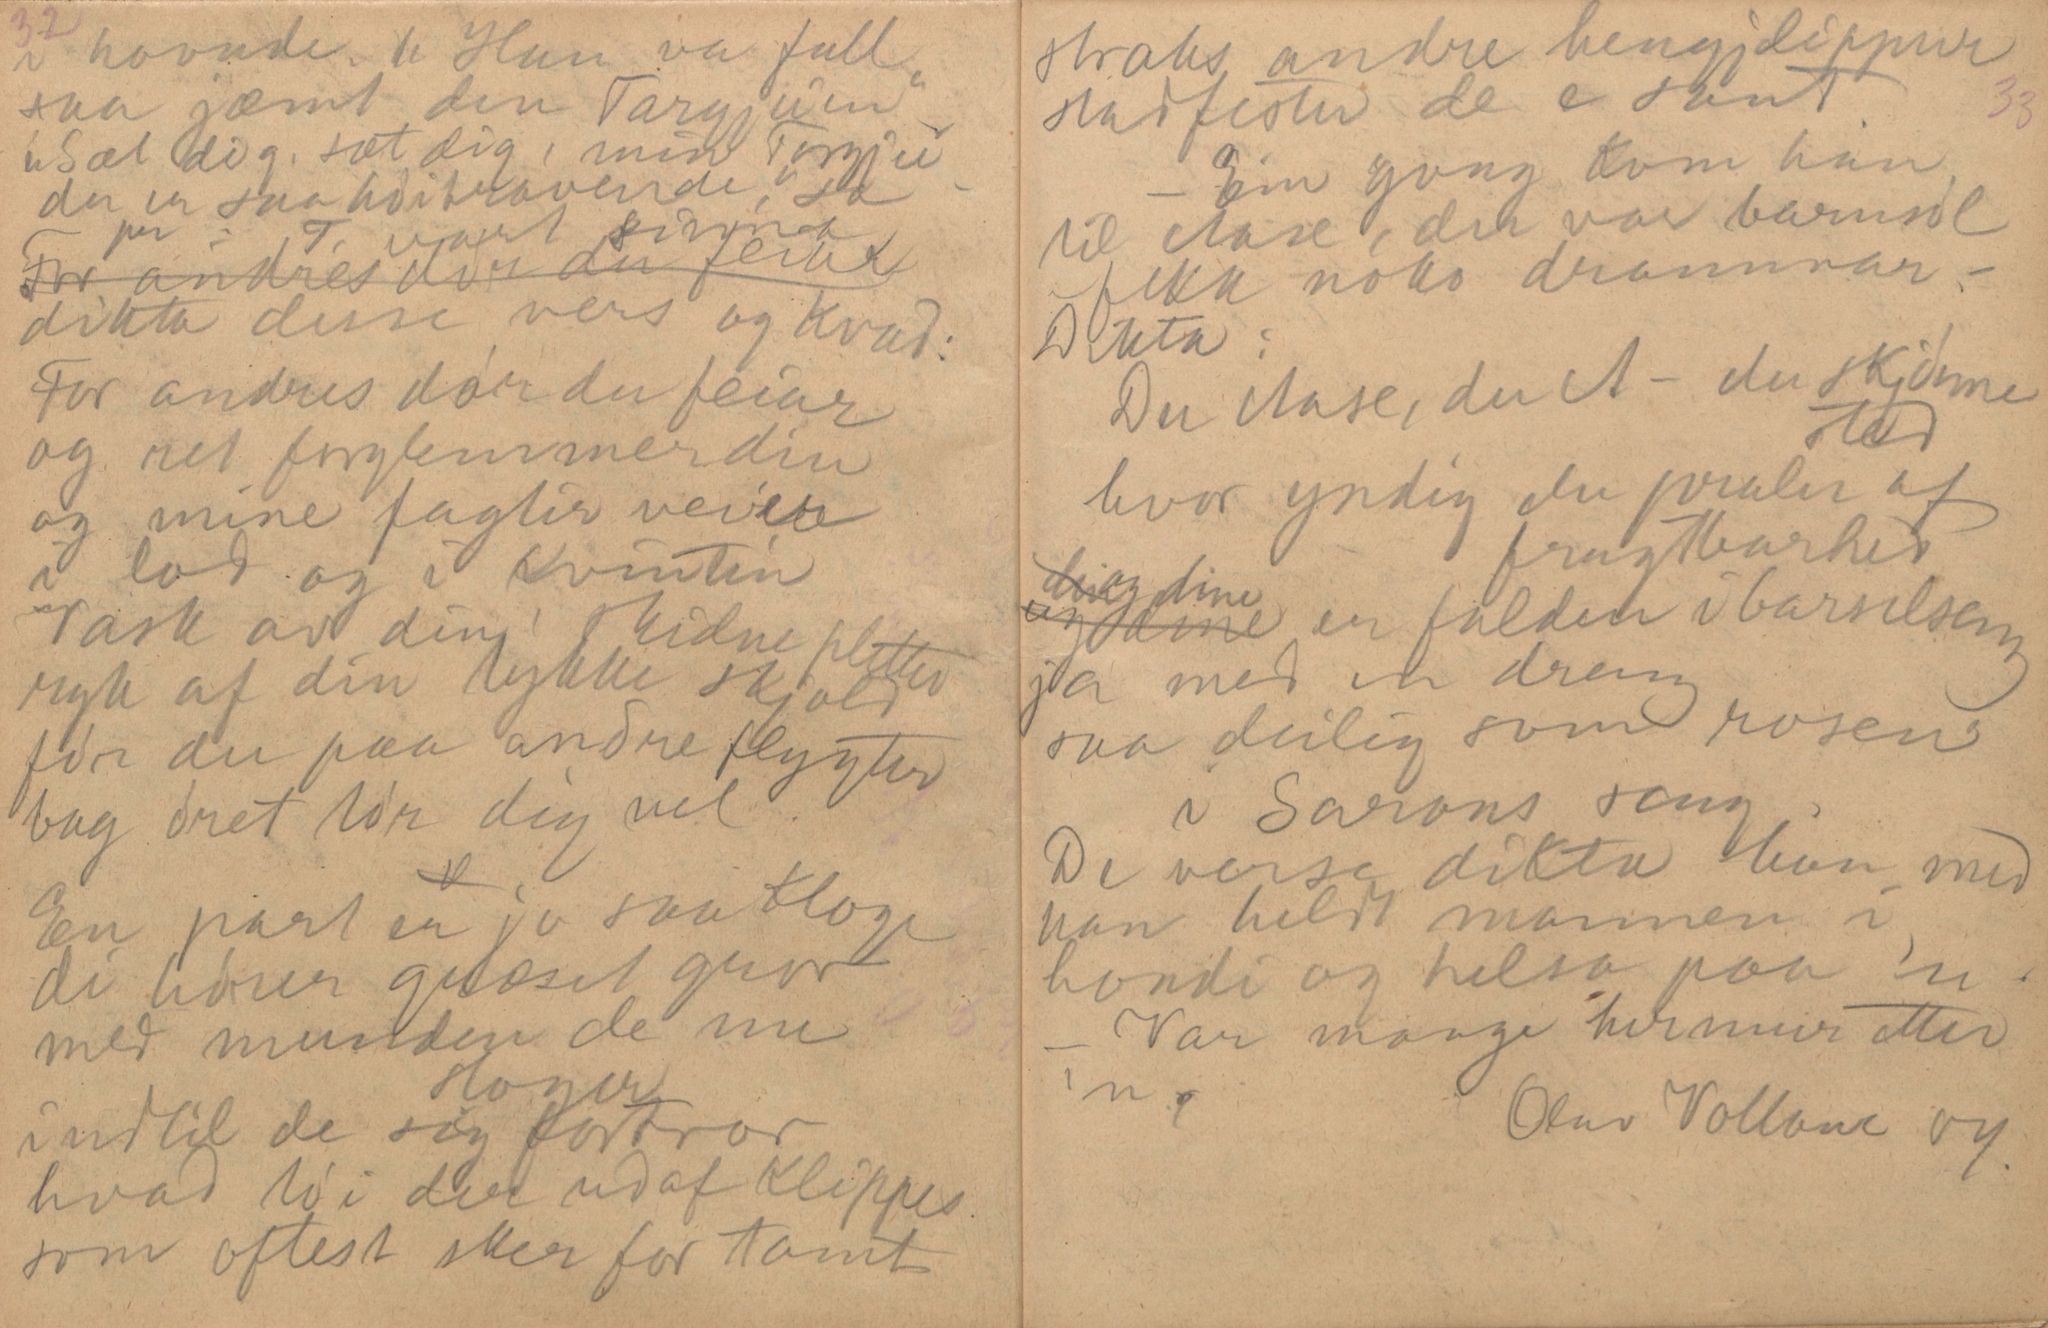 32
i hovude. " Han va full
saa jæmt den Targjùin"
"Sæt dig, sæt dig, min Torgjù
du er saa hóitravende," sa
per i T. vart sinna
For andres dór du feiar
dikta desse vers og kvad:
For andres dór du feiar
og ret forglemmer din
og mine fagter veier
i lod og i kvintin
Vask av din skidne pletter
ryk af din lykke skjold
fór du paa andre flygter
bag óret tór dig vel.
En part er jo saa kloge
de hórer græset gror
med munden de nu
stoger
indtil de sig fortror
hvad tói der udaf klippes
som oftest sker for tomt
33
straks andre hengjslippur
stadfester de e sant
- Ein gong kom han
til Aase, der var barnsól
fekk noko drammar. -
Dikta:
Du Aase, du A - du skjónne
sted
hvor yndig du praler af
frugtbarhed
dig og dine
og dine er falden i barselseng
ja med en dreng
saa deilig som rosen
i Sarons seng.
De verse dikta han med
han heldt mannen i
hondi og helsa paa 'n.
- Var mange hermur etter
'n.
Olav Vollane og.